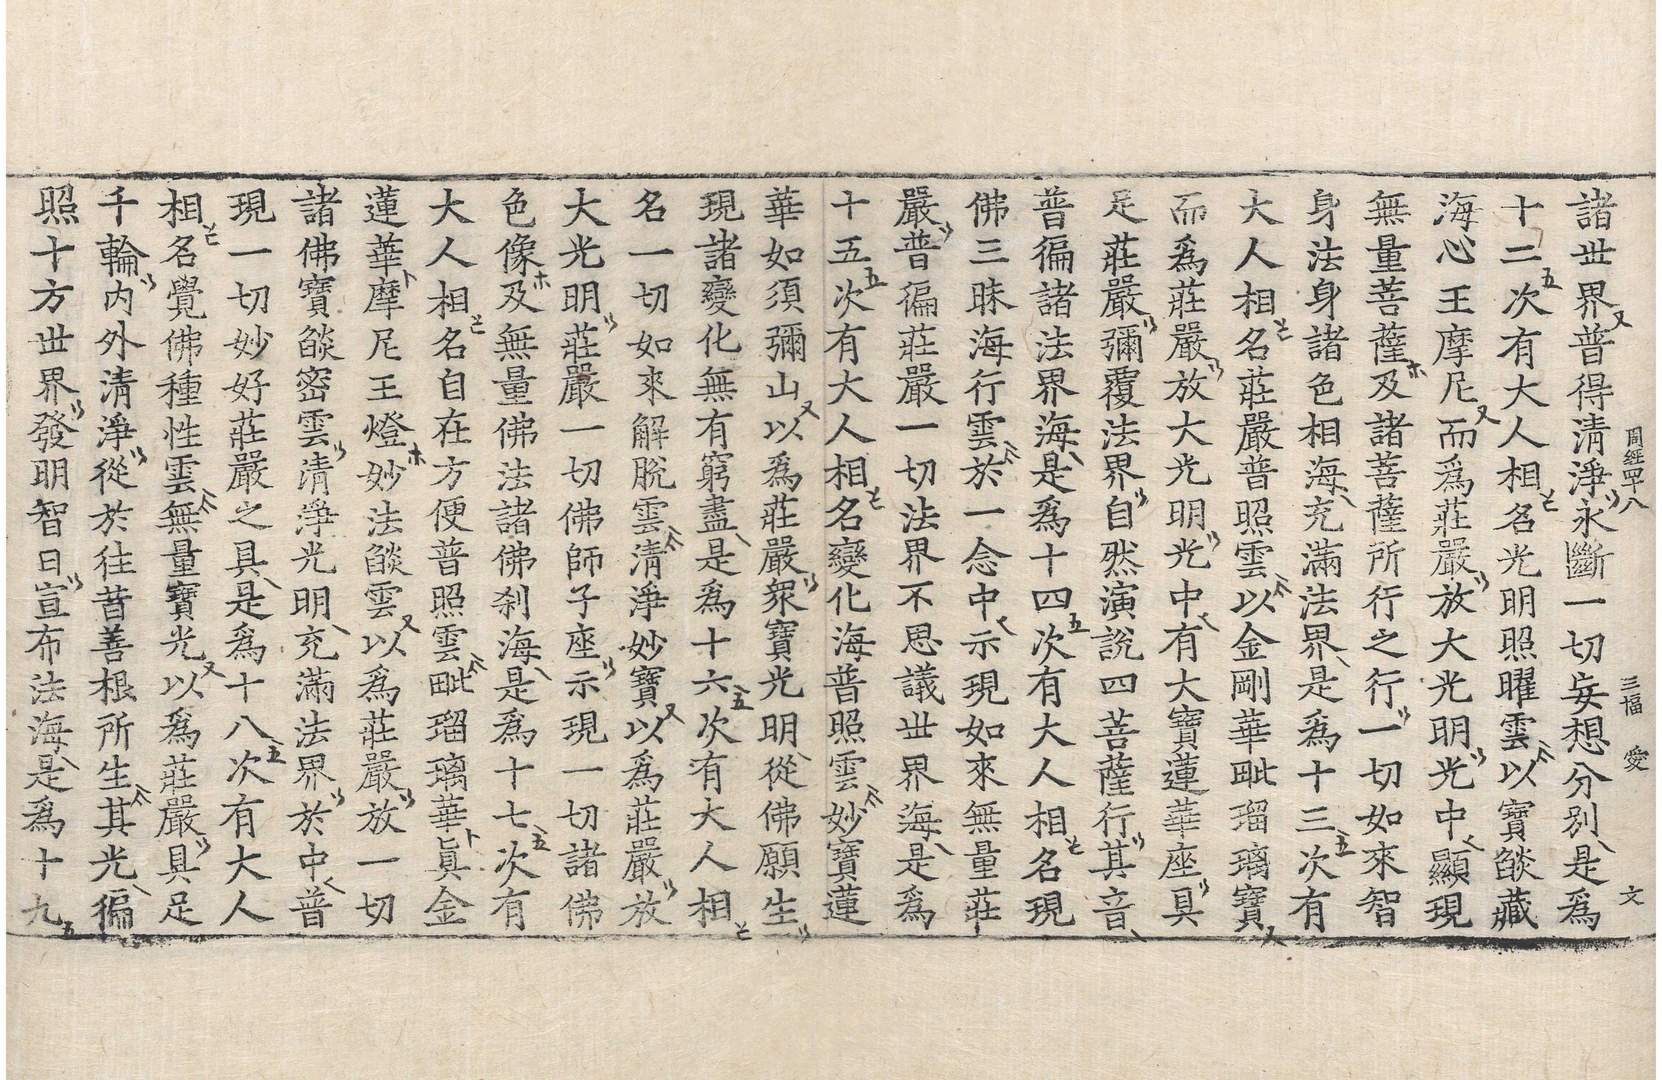 諸世界普得清淨永斷一切妄想分別是爲
十二次有大人相名光明照曜雲以寶燄藏
海心王摩尼而爲莊嚴放大光明光中顯現
無量菩薩及諸菩薩所行之行一切如來智
身法身諸色相海充滿法界是爲十三次有
大人相名莊嚴普照雲以金剛華毗瑠璃寶
而爲莊嚴放大光明光中有大寶蓮華座具
足莊嚴彌覆法界自然演說四菩薩行其音
普徧諸法界海是爲十四次有大人相名現
佛三昧海行雲於一念中示現如來無量莊
嚴普徧莊嚴一切法界不思議世界海是爲
十五次有大人相名變化海普照雲妙寶蓮
華如須彌山以爲莊嚴衆寶光明從佛願生
現諸變化無有窮盡是爲十六次有大人相
名一切如來解脫雲清淨妙寶以爲莊嚴放
大光明莊嚴一切佛師子座示現一切諸佛
色像及無量佛法諸佛刹海是爲十七次有
大人相名自在方便普照雲毗瑠璃華眞金
蓮華摩尼王燈妙法燄雲以爲莊嚴放一切
諸佛寶燄密雲清淨光明充滿法界於中普
現一切妙好莊嚴之具是爲十八次有大人
相名覺佛種性雲無量寶光以爲莊嚴具足
千輪內外清淨從於往昔善根所生其光徧
照十方世界發明智日宣布法海是爲十九